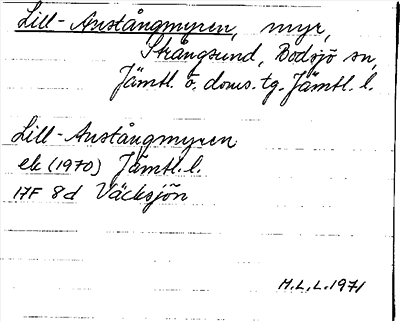 Lill-Anstångmyren, myr,
Strångsund, Bodsjö sn,
Jämtl. ö. doms. tg. Jämtl. l.
Lill-Anstångmyren
ek (1970) Jämtl. l.
17F 8d Väcksjön
H.L.L. 1971